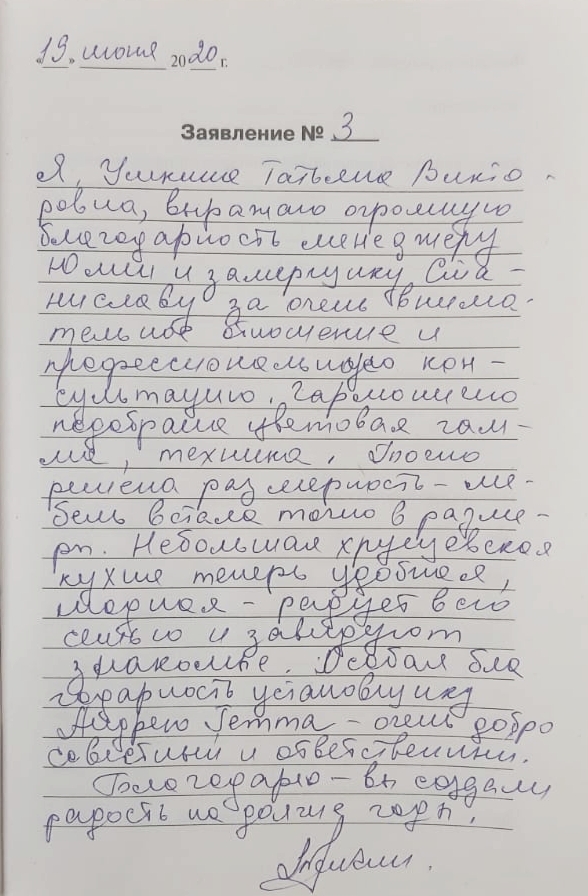 «19» июня 2020 г.
Заявление № 3
Я, Татьяна Викто-
ровна, выражаю огромную
благодарность менеджеру
Юлии и замерщику Ста-
ниславу за очень внима-
тельное отношение и
профессиональную кон-
сультацию. Гармонично
подобрана цветовая гам-
ма, техника. Точно
решена размерность - ме-
бель встала точно в разме-
ры. Небольшая хрущевская
кухня теперь удобная,
модная - радует всю
семью и завидуют
знакомые. Особая бла
годарность установщику
Андрею Гетта - очень добро
совестный и ответственный.
Благодарю - вы создали
радость на долгие годы.